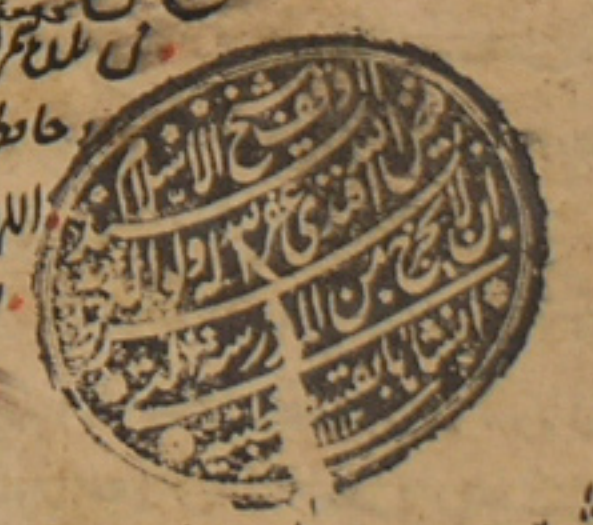 وقف شيخ الاسلام
السيد فيض الله افندى غفر الله له ولوالديه
بشرط ان لا يخرج من المدرسة التى
انشاها بقسطنطينية ١١١٣